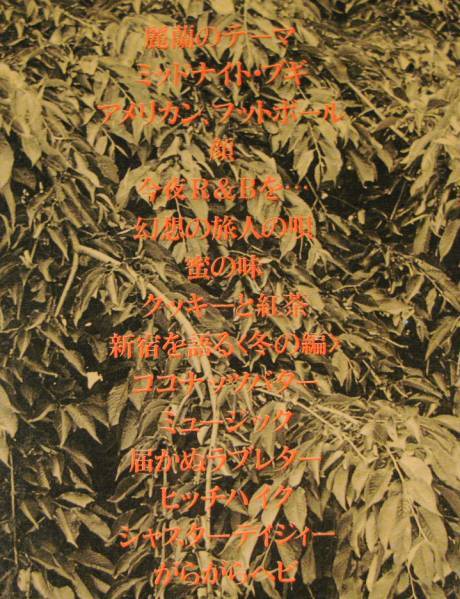 麗蘭のテーマ
ミッドナイト・ブギ
アメリカン、フットボール
顔
今夜R&Bを…
幻想の旅人の唄
蜜の味
クッキーと紅茶
新宿を語る〈冬の編〉
ココナッツバター
ミュージック
届かぬラブレター
ヒッチハイク
シャスターデイジィー
がらがらヘビ